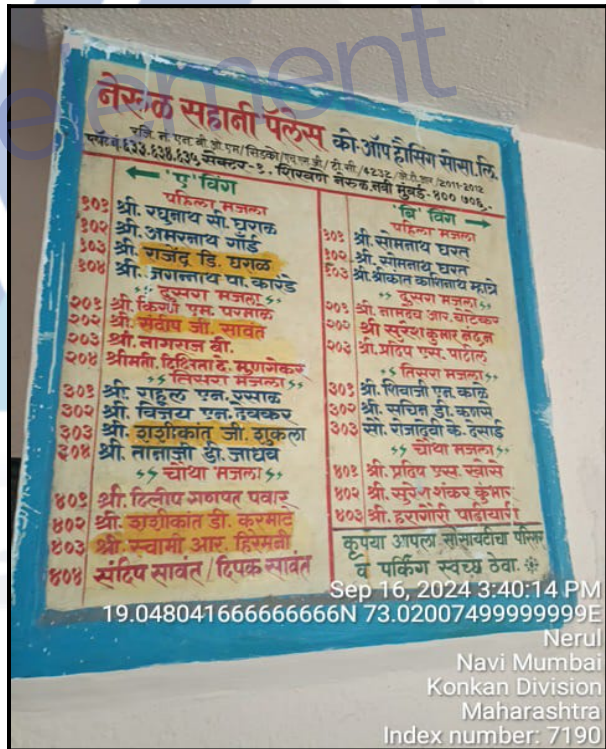 element
नेरुळ सहानी पॅलेस को-ऑप हौसिंग सोसा. लि.
रजि. नं. एन. बी. ओ. एम/सिडको/एच. एस. जी/टी. सी/4232/जे. टी. आर/2011-2012
प्लॉट नं. ६३३, ६३४, ६३५ सेक्टर-१, शिरवणे नेरुळ, नवी मुंबई-४०० ७०६.
← 'ए' विंग
पहिला मजला
१०१ श्री. रघुनाथ सी. घरत
१०२ श्री. अमरनाथ गौंड
१०३ श्री. राजेंद्र डि. घराळ
१०४ श्री. जगन्नाथ पा. कारंडे
दुसरा मजला
२०१ श्री. किरण एम. परमाळ
२०२ श्री. संदीप जी. सावंत
२०३ श्री. नागराज बी.
२०४ श्रीमती. दिक्षिता दे. मुणगेकर
तिसरा मजला
३०१ श्री. राहुल एन. रसाळ
३०२ श्री. विजय एन. देवकर
३०३ श्री. शशीकांत जी. शुकला
३०४ श्री. तानाजी डी. जाधव
चौथा मजला
४०१ श्री. दिलीप गणपत पवार
४०२ श्री. शशीकांत डी. करमाटे
४०३ श्री. स्वामी आर. हिरेमनी
४०४ संदिप सावंत / दिपक सावंत
'बि' विंग →
पहिला मजला
१०१ श्री. सोमनाथ घरत
१०२ श्री. सोमनाथ घरत
१०३ श्री. श्रीकांत काशिनाथ म्हात्रे
दुसरा मजला
२०१ श्री. नामदेव आर. चाटकर
२०२ श्री सुरेश कुमार नंदन
२०३ श्री. प्रदिप एस. पाटील
तिसरा मजला
३०१ श्री. शिवाजी एन. काळे
३०२ श्री. सचिन डी. कणसे
३०३ सौ. रोजादेवी के. देसाई
चौथा मजला
४०१ श्री. प्रदिप एस. खोसे
४०२ श्री. सुरेश शंकर कुंभार
४०३ श्री. हरागोरी पाढीयारी
कृपया आपला सोसायटीचा परिसर
व पर्किंग स्वच्छ ठेवा.
Sep 16, 2024 3:40:14 PM
19.048041666666666N 73.02007499999999E
Nerul
Navi Mumbai
Konkan Division
Maharashtra
Index number: 7190